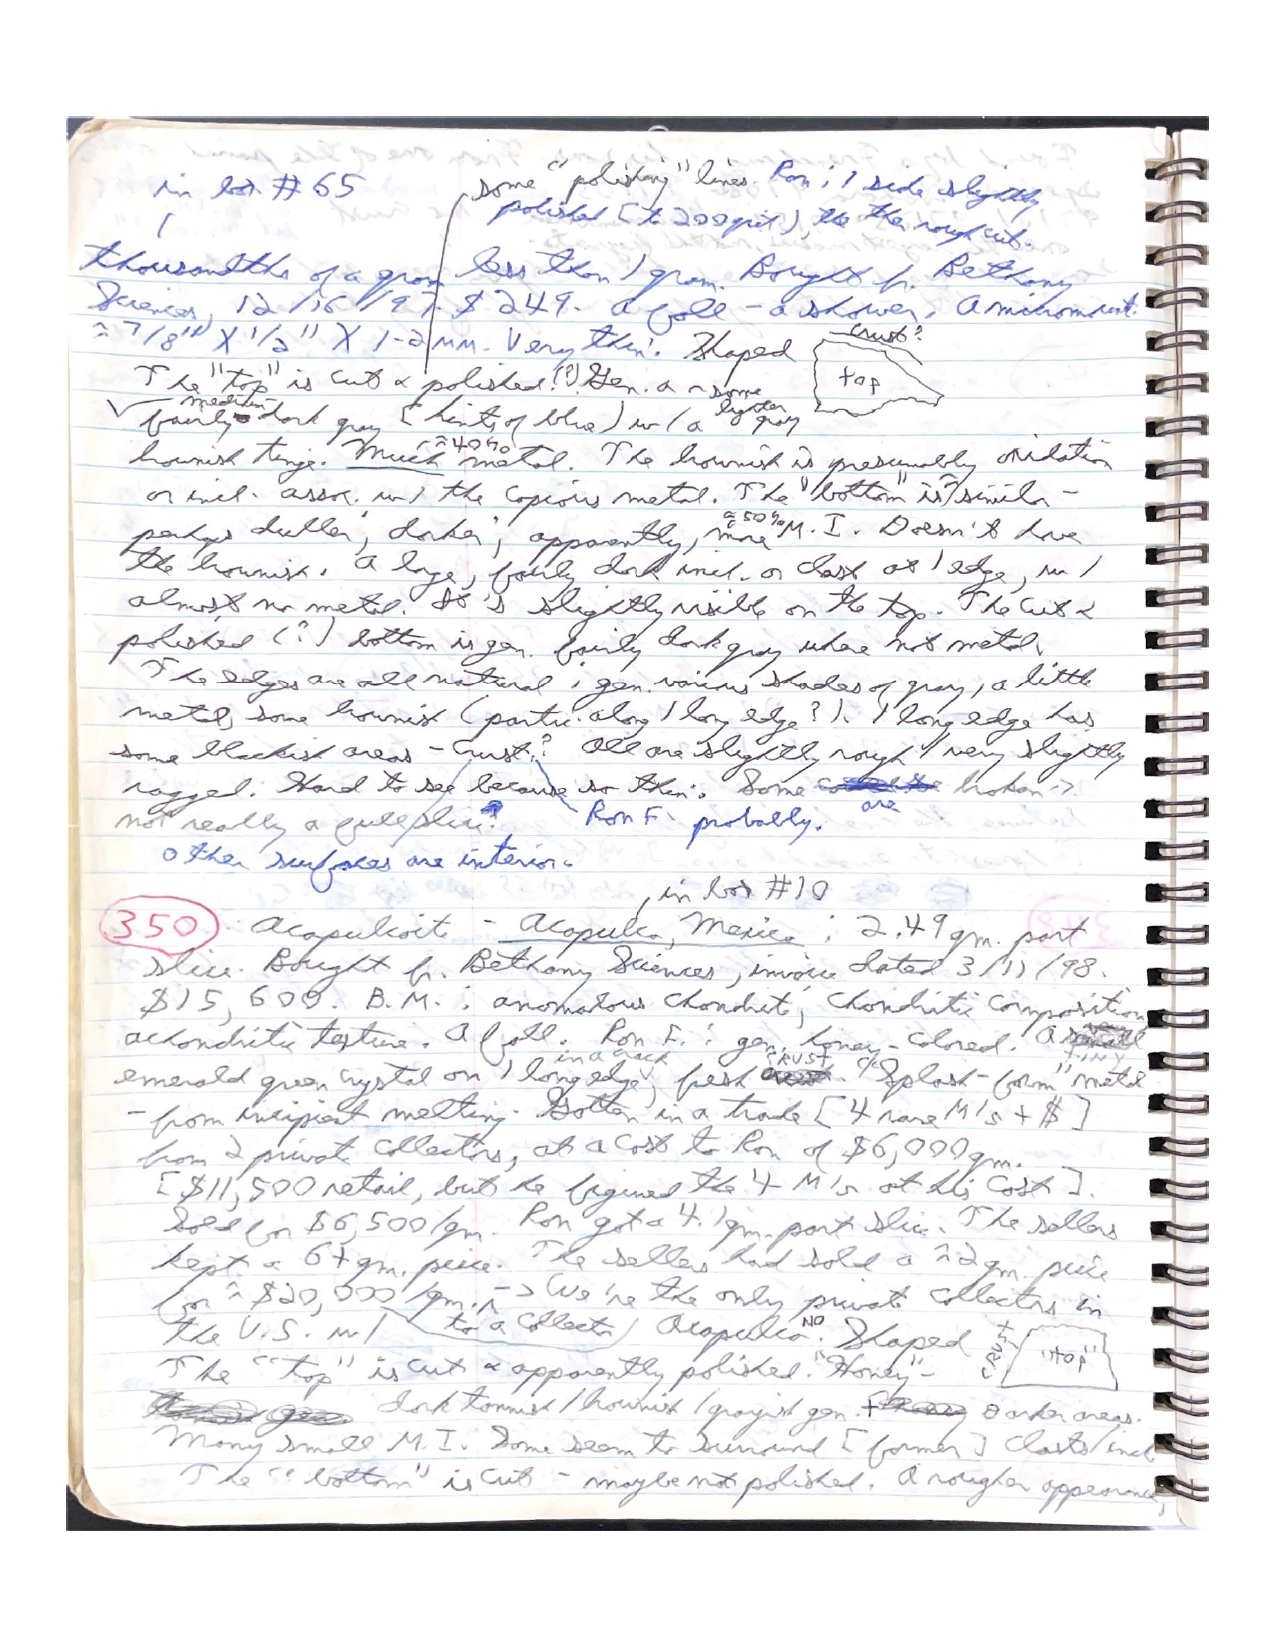 in box #65
some "polishing" lines. Ron: 1 side slightly
polished [to 200 grit], the other rough cut.
thousandths of a gram less than 1 gram. Bought fr. Bethany
Sciences, 12/16/97. $249. A fall - a shower. A micromount.
≈ 7/8" X 1/2" X 1-2 mm. Very thin. Shaped
Crust?
top
The "top" is cut & polished (?) Gen. a ~ some
medium lighter
fairly dark gray [hints of blue] w/ a gray
≈40%
brownish tinge. Much metal. The brownish is presumably oxidation
or incl. assoc. w/ the copious metal. The "bottom" is ≈ similar -
≈50%
perhaps duller, darker, apparently, more M.I. Doesn't have
the brownish. A large, fairly dark incl. or clast at 1 edge, w/
almost no metal. It's slightly visible on the top. The cut &
polished (?) bottom is gen. fairly dark gray where not metal.
The edges are all natural; gen. various shades of gray, a little
metal, some brownish (partic. along 1 long edge?). 1 long edge has
some blackish areas - crust? All are slightly rough / very slightly
ragged. Hard to see because so thin. Some are broken ->
not really a full slice?
Ron F. probably.
Other surfaces are interior.
in box #10
350. Acapulcoite - Acapulco, Mexico; 2.49 gm. part
slice. Bought fr. Bethany Sciences, invoice dated 3/11/98.
$15,600. B.M.: anomalous chondrite, chondritic composition
achondritic texture. A fall. Ron F.: gen. honey-colored. A very
tiny
in a crack CRUST
emerald green crystal on 1 long edge, fresh "Splash-form" metal
- from incipient melting. Gotten in a trade [4 rare M's + $]
from 2 private collectors, at a cost to Ron of $6,000 gm.
[$11,500 retail, but he figured the 4 M's at his cost].
Sold for $6,500/gm. Ron got a 4.1 gm. part slice. The sellers
kept a 6+ gm. piece. The sellers had sold a ≈2 gm. piece
for ≈ $20,000/gm. -> We're the only private collectors in
to a collector NO
the U.S. w/ Acapulco. Shaped
CRUST
"top"
The "top" is cut & apparently polished. "Honey"-
dark tannish/brownish/grayish gen. + darker areas.
Many small M.I. Some seem to surround [former] clasts/incl.
The "bottom" is cut - maybe not polished. A rougher appearance,